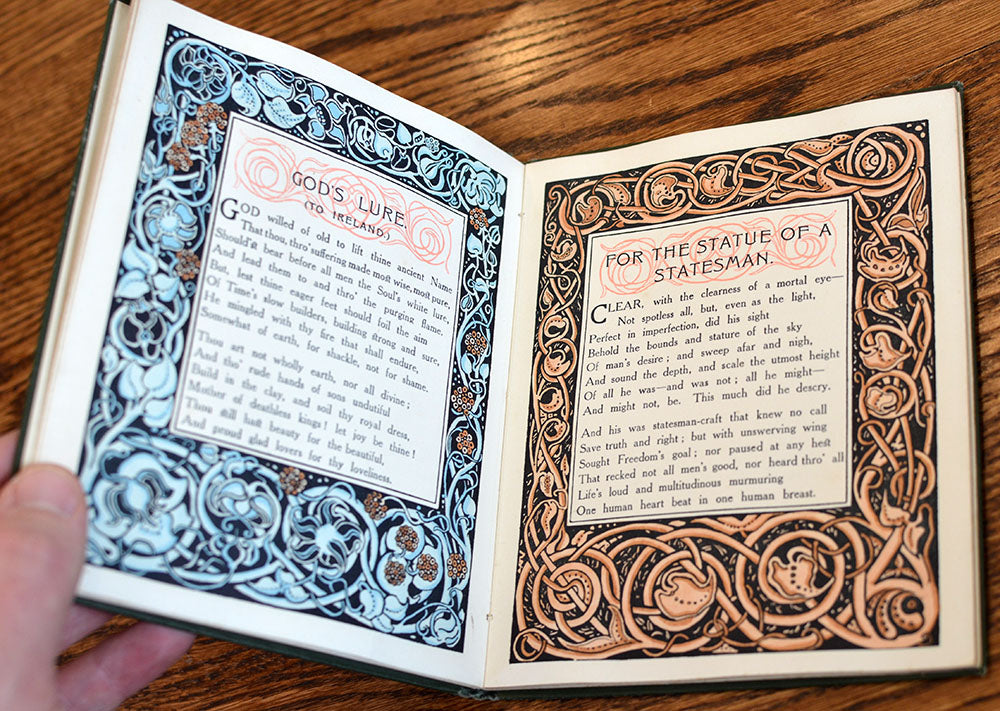 GOD'S LURE.
(TO IRELAND.)
GOD willed of old to lift thine ancient Name
That thou, thro' suffering made most wise, most pure,
Should'st bear before all men the Soul's white lure,
And lead them to and thro' the purging flame.
But, lest thine eager feet should foil the aim
Of Time's slow builders, building strong and sure,
He mingled with thy fire that shall endure,
Somewhat of earth, for shackle, not for shame.
Thou art not wholly earth, nor all divine;
And tho' rude hands of sons undutiful
Build in the clay, and soil thy royal dress,
Mother of deathless kings! let joy be thine!
Thou still hast beauty for the beautiful,
And proud glad lovers for thy loveliness.
FOR THE STATUE OF A
STATESMAN.
CLEAR, with the clearness of a mortal eye—
Not spotless all, but, even as the light,
Perfect in imperfection, did his sight
Behold the bounds and stature of the sky
Of man's desire; and sweep afar and nigh,
And sound the depth, and scale the utmost height
Of all he was—and was not; all he might—
And might not, be. This much did he descry.
And his was statesman-craft that knew no call
Save truth and right; but with unswerving wing
Sought Freedom's goal; nor paused at any hest
That recked not all men's good, nor heard thro' all
Life's loud and multitudinous murmuring
One human heart beat in one human breast.